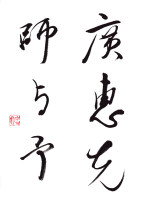 廣惠先
師与予